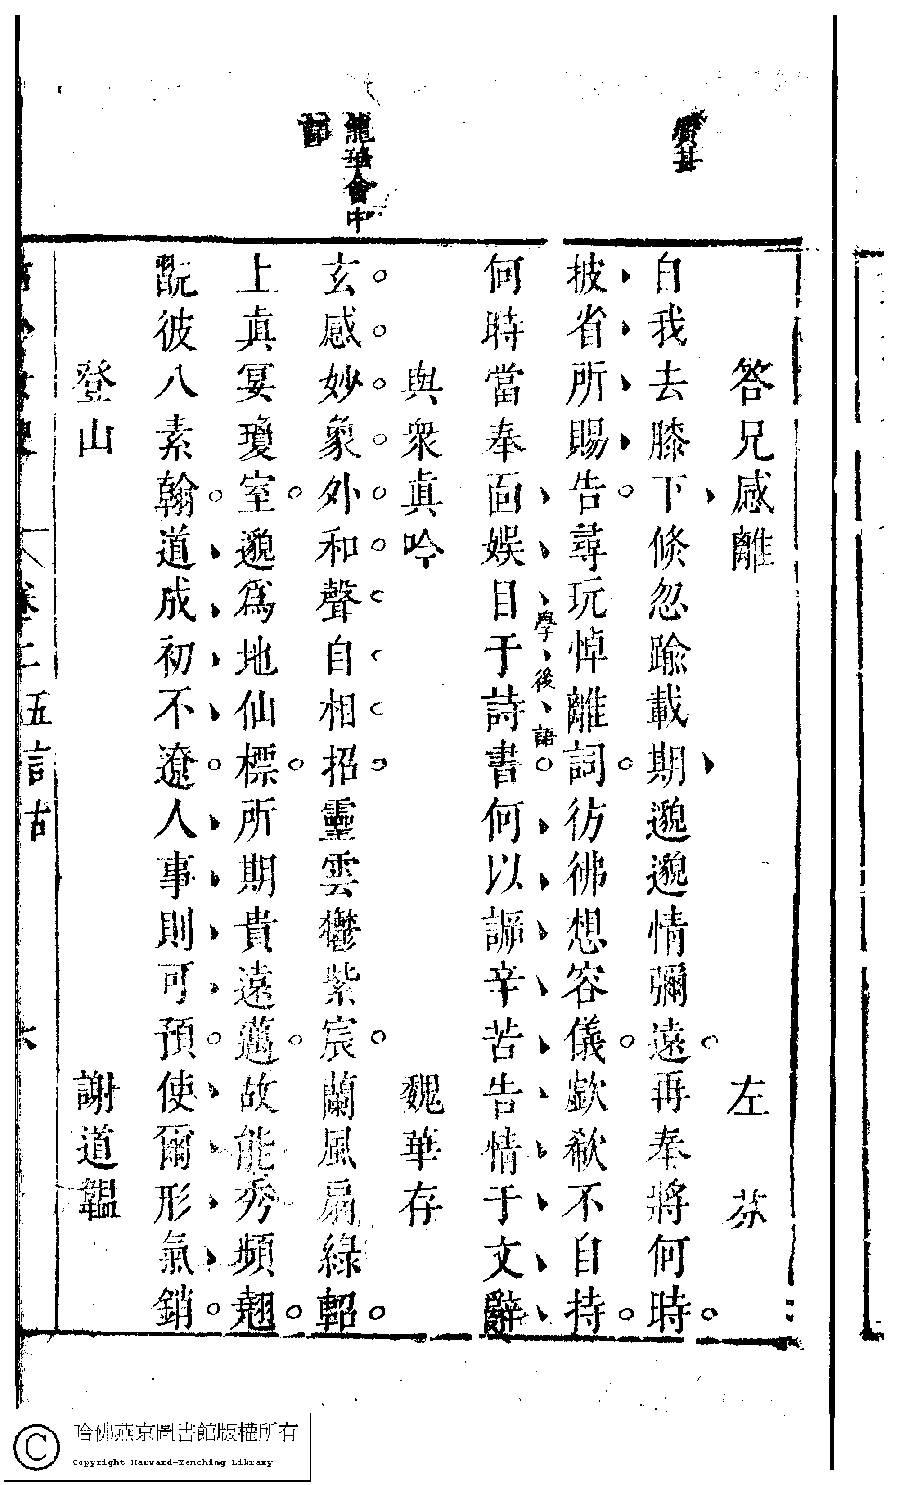 甚
答兄感離　左芬
自我去膝下倏忽踰載期邈邈情彌遠再奉將何時
披省所賜告尋玩悼離詞彷彿想容儀歔欷不自持
學後語
何時當奉面娛目于詩書何以訴辛苦告情于文辭
龍華會中
與衆眞吟　魏華存
玄感妙象外和聲自相招靈雲鬱紫宸蘭風扇綠軺
上眞宴瓊室邈爲地仙標所期貴遠邁故能秀頻翹
翫彼八素翰道成初不遼人事則可預使爾形氣銷
登山　謝道韞
卷二五言古　六
哈佛燕京圖書館版權所有
Copyright Harvard-Yenching Library